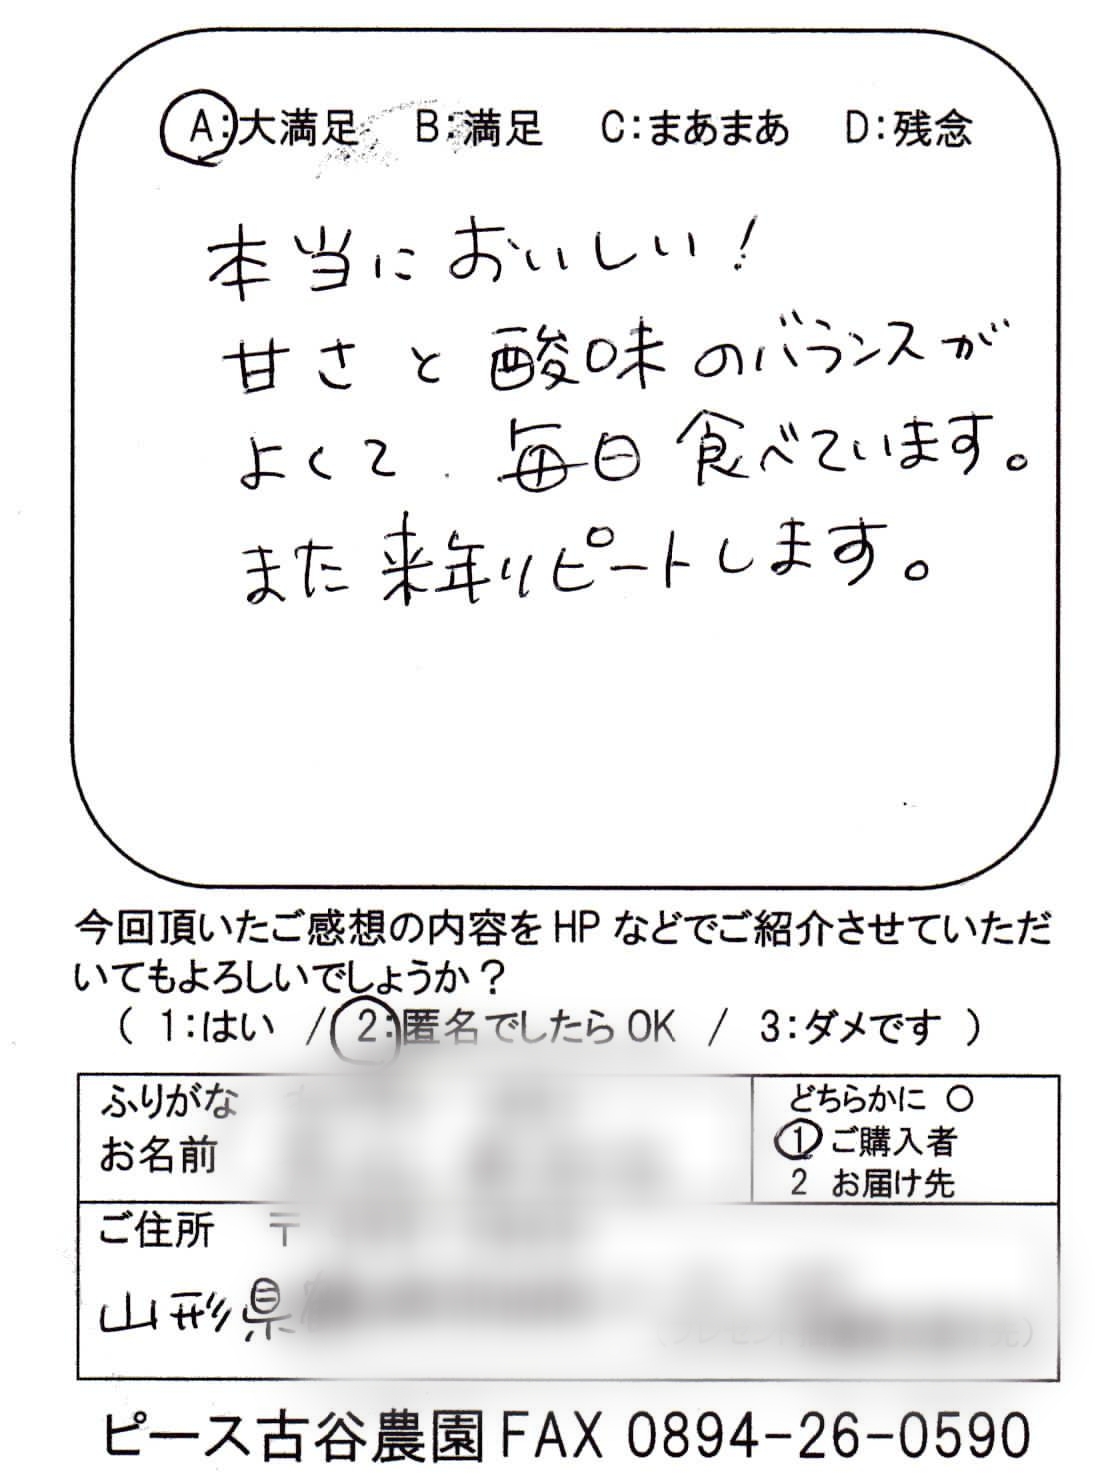 A：大満足　B：満足　C：まあまあ　D：残念
本当においしい！
甘さと酸味のバランスが
よくて、毎日食べています。
また来年リピートします。
今回頂いたご感想の内容をHPなどでご紹介させていただ
いてもよろしいでしょうか？
（ 1：はい / 2：匿名でしたらOK / 3：ダメです ）
ふりがな
お名前
どちらかに ○
1 ご購入者
2 お届け先
ご住所 〒
山形県
ピース古谷農園 FAX 0894-26-0590